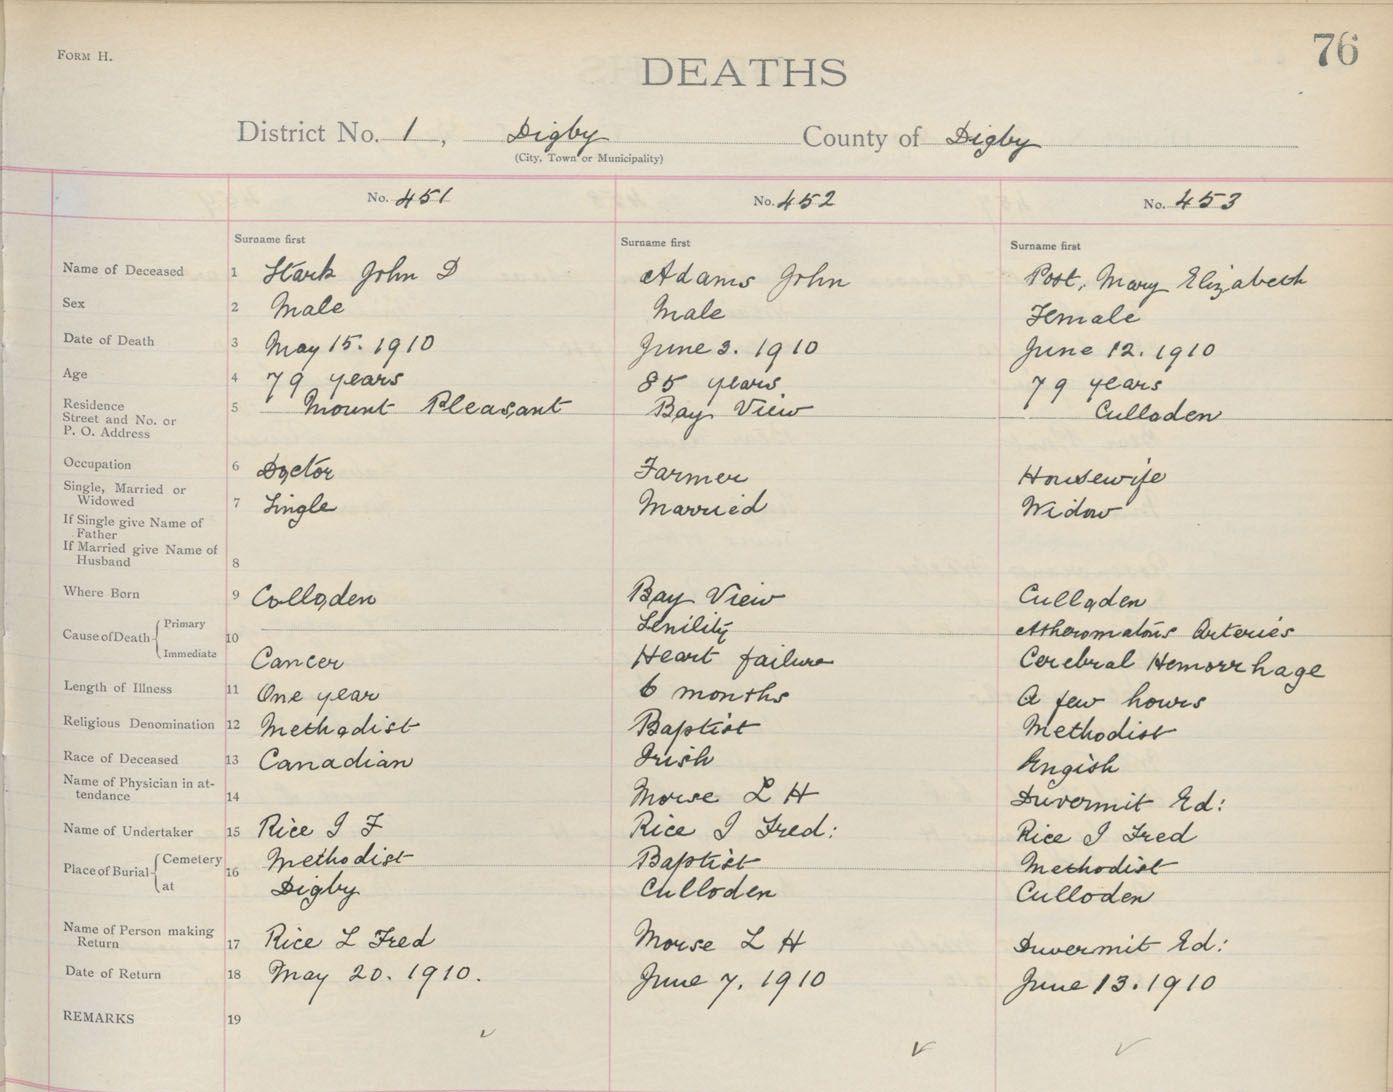 FORM H.
76
DEATHS
District No. 1, Digby County of Digby
(City, Town or Municipality)
No. 451 No. 452 No. 453
Surname first Surname first Surname first
Name of Deceased 1 Stark John D Adams John Post, Mary Elizabeth
Sex 2 Male Male Female
Date of Death 3 May 15. 1910 June 3. 1910 June 12. 1910
Age 4 79 years 85 years 79 years
Residence
Street and No. or 5 Mount Pleasant Bay View Culloden
P. O. Address
Occupation 6 Doctor Farmer Housewife
Single, Married or
Widowed 7 Single Married Widow
If Single give Name of
Father
If Married give Name of
Husband 8
Where Born 9 Colloden Bay View Culloden
Cause of Death Primary 10 Senility Atheromatous Arteries
Immediate Cancer Heart failure Cerebral Hemorrhage
Length of Illness 11 One year 6 months A few hours
Religious Denomination 12 Methodist Baptist Methodist
Race of Deceased 13 Canadian Irish Engish
Name of Physician in at-
tendance 14 Morse L H Duvermit Ed:
Name of Undertaker 15 Rice I F Rice I Fred: Rice I Fred
Place of Burial Cemetery 16 Methodist Baptist Methodist
at Digby Culloden Culloden
Name of Person making
Return 17 Rice L Fred Morse L H Duvermit Ed:
Date of Return 18 May 20. 1910. June 7. 1910 June 13. 1910
REMARKS 19